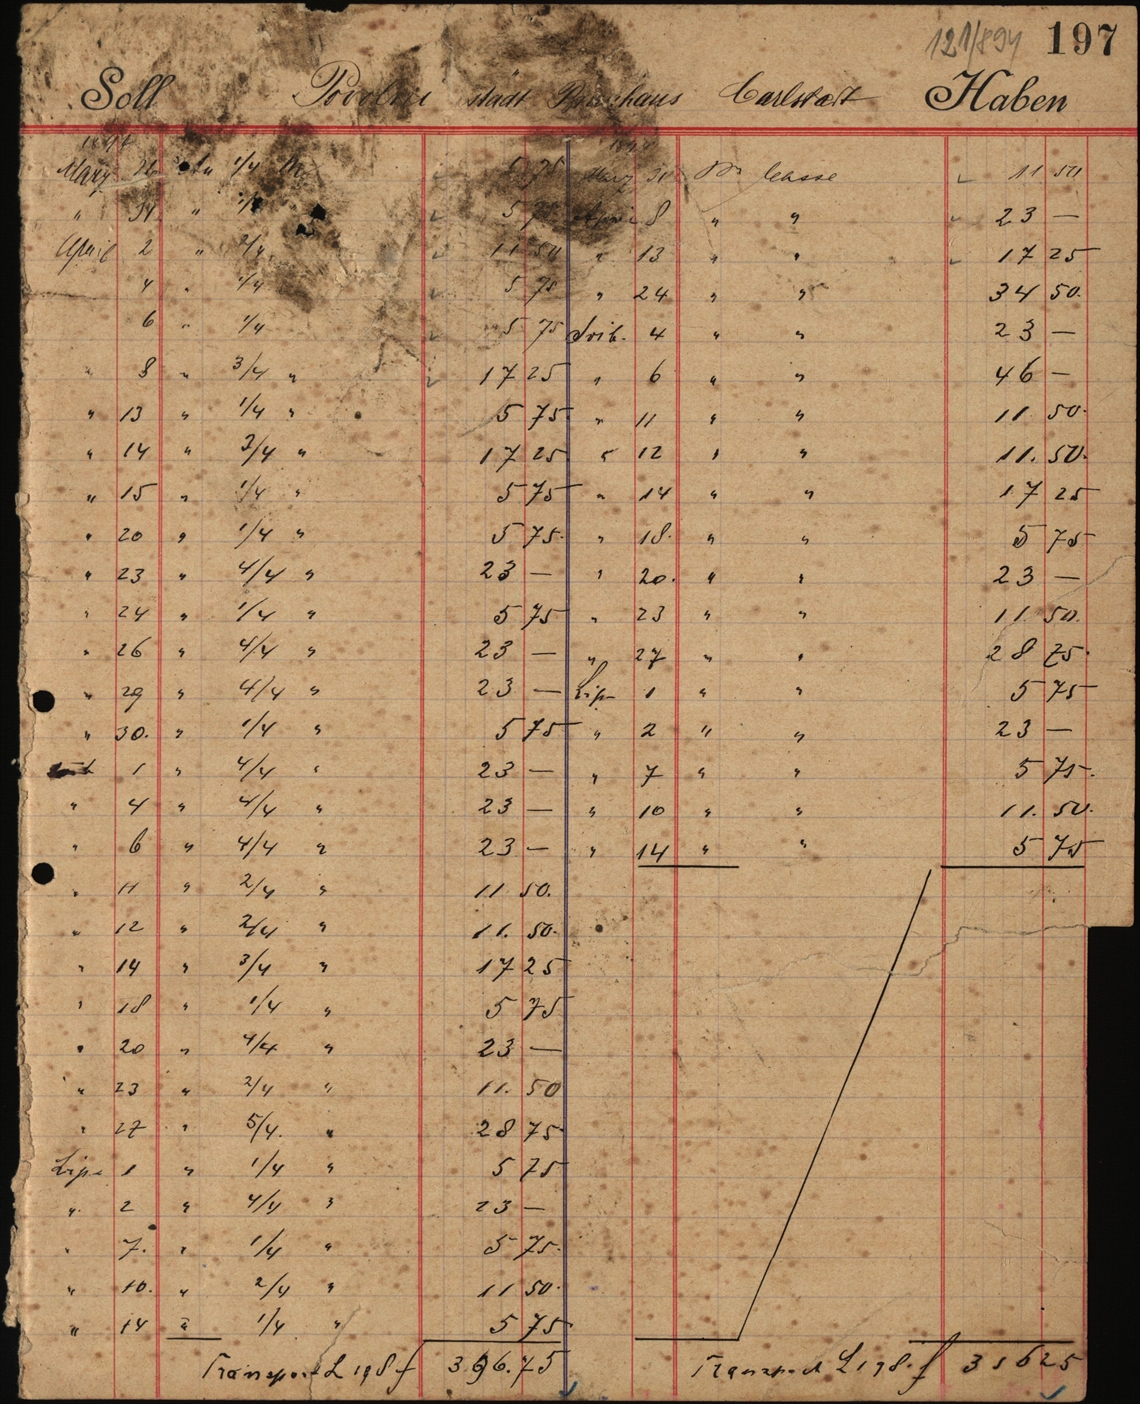 121/894 197
Soll städt Brauhaus Carlstadt Haben
März 1/4 5 75 März 31 Pr Casse 11 50
" 31 " 5 75 April 8 " " 23 —
April 2 " 2/4 11 50 " 13 " " 17 25
4 " 1/4 5 75 " 24 " " 34 50
6 " 1/4 5 75 Svib. 4 " " 23 —
" 8 " 3/4 " 17 25 " 6 " " 46 —
" 13 " 1/4 " 5 75 " 11 " " 11 50
" 14 " 3/4 " 17 25 " 12 " " 11. 50.
" 15 " 1/4 " 5 75 " 14 " " 17 25
" 20 " 1/4 " 5 75 " 18. " " 5 75
" 23 " 4/4 " 23 — " 20. " " 23 —
" 24 " 1/4 " 5 75 " 23 " " 11. 50.
" 26 " 4/4 " 23 — " 27 " " 28 75
" 29 " 4/4 " 23 — Lip 1 " " 5 75
" 30. " 1/4 " 5 75 " 2 " " 23 —
1 " 4/4 " 23 — " 7 " " 5 75.
" 4 " 4/4 " 23 — " 10 " " 11. 50.
" 6 " 4/4 " 23 — " 14 " " 5 75
" 11 " 2/4 " 11 50.
" 12 " 2/4 " 11. 50.
" 14 " 3/4 " 17 25
" 18 " 1/4 " 5 75
" 20 " 4/4 " 23 —
" 23 " 2/4 " 11. 50
" 27 " 5/4. " 28 75
Lipa 1 " 1/4 " 5 75
" 2 " 4/4 " 23 —
" 7. " 1/4 " 5 75.
" 10. " 2/4 " 11 50.
" 14 " 1/4 " 5 75
Transport L 198 f 396.75 Transport L 198. f 316 25